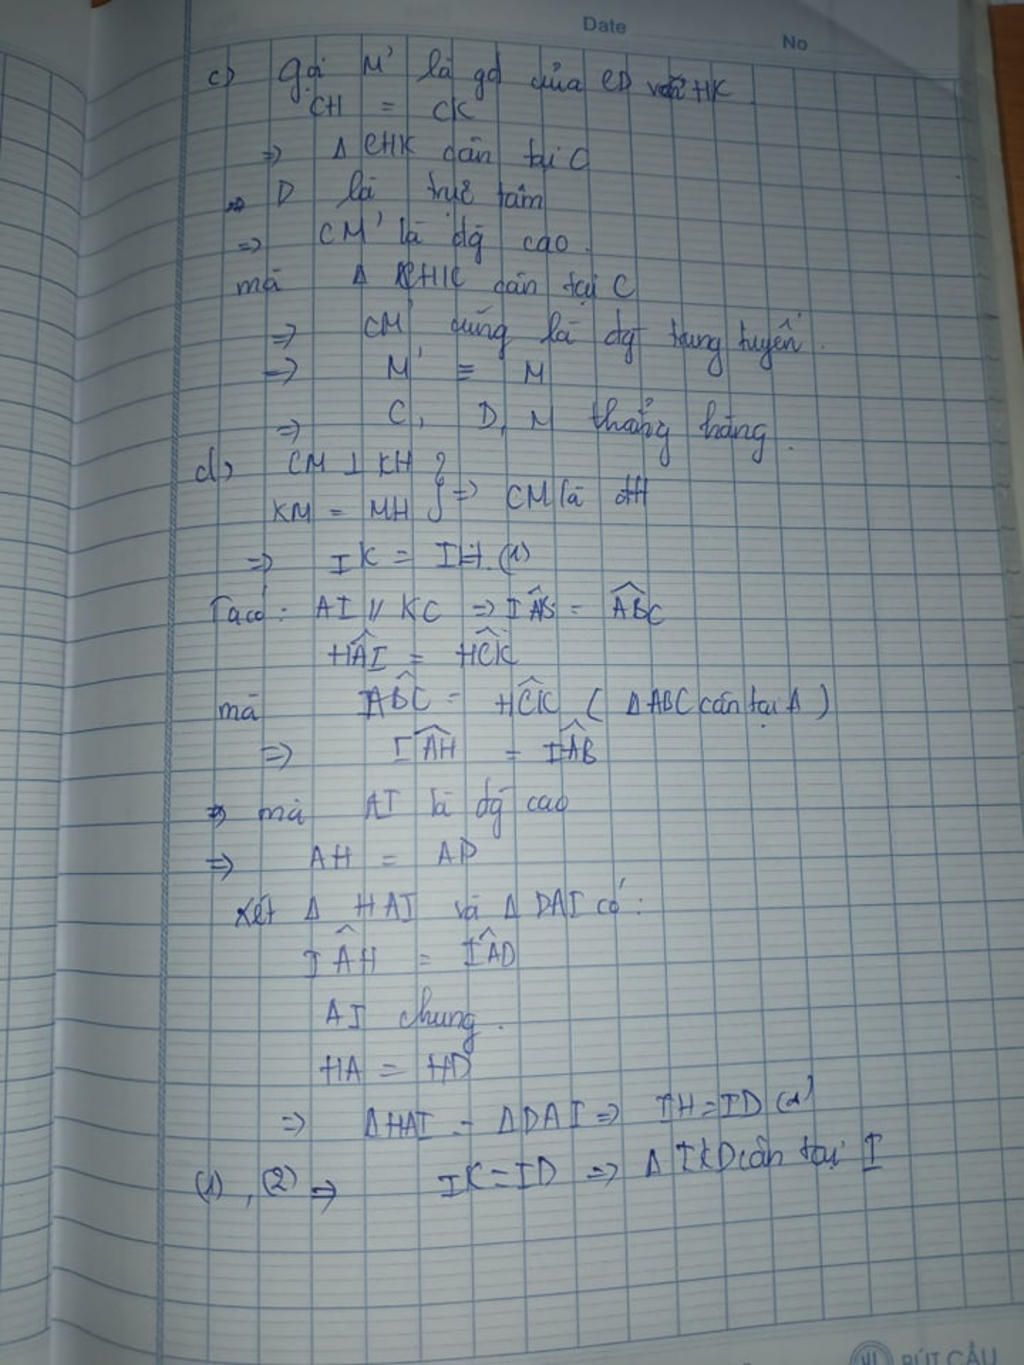 Date
No
c) gọi M' là gđ của CD với HK
CH = CK
=> Δ CHK cân tại C
=> D là trực tâm
=> CM' là đg cao.
mà Δ CHK cân tại C
=> CM' cũng là đg trung tuyến.
=> M' ≡ M
=> C, D, M thẳng hàng.
d) CM ⊥ KH
KM = MH } => CM là đtt
=> IK = IH. (1)
Ta có: AI // KC => IÂB = ABC
HAI = HCK
mà ABC = HCK (Δ ABC cân tại A)
=> IAH = IAB
=> mà AI là đg cao
=> AH = AD
Xét Δ HAI và Δ DAI có:
IÂH = IÂD
AI chung.
HA = HD
=> ΔHAI = ΔDAI => IH = ID (2)
(1), (2) => IK = ID => Δ IKD cân tại I
BÚT CẦU